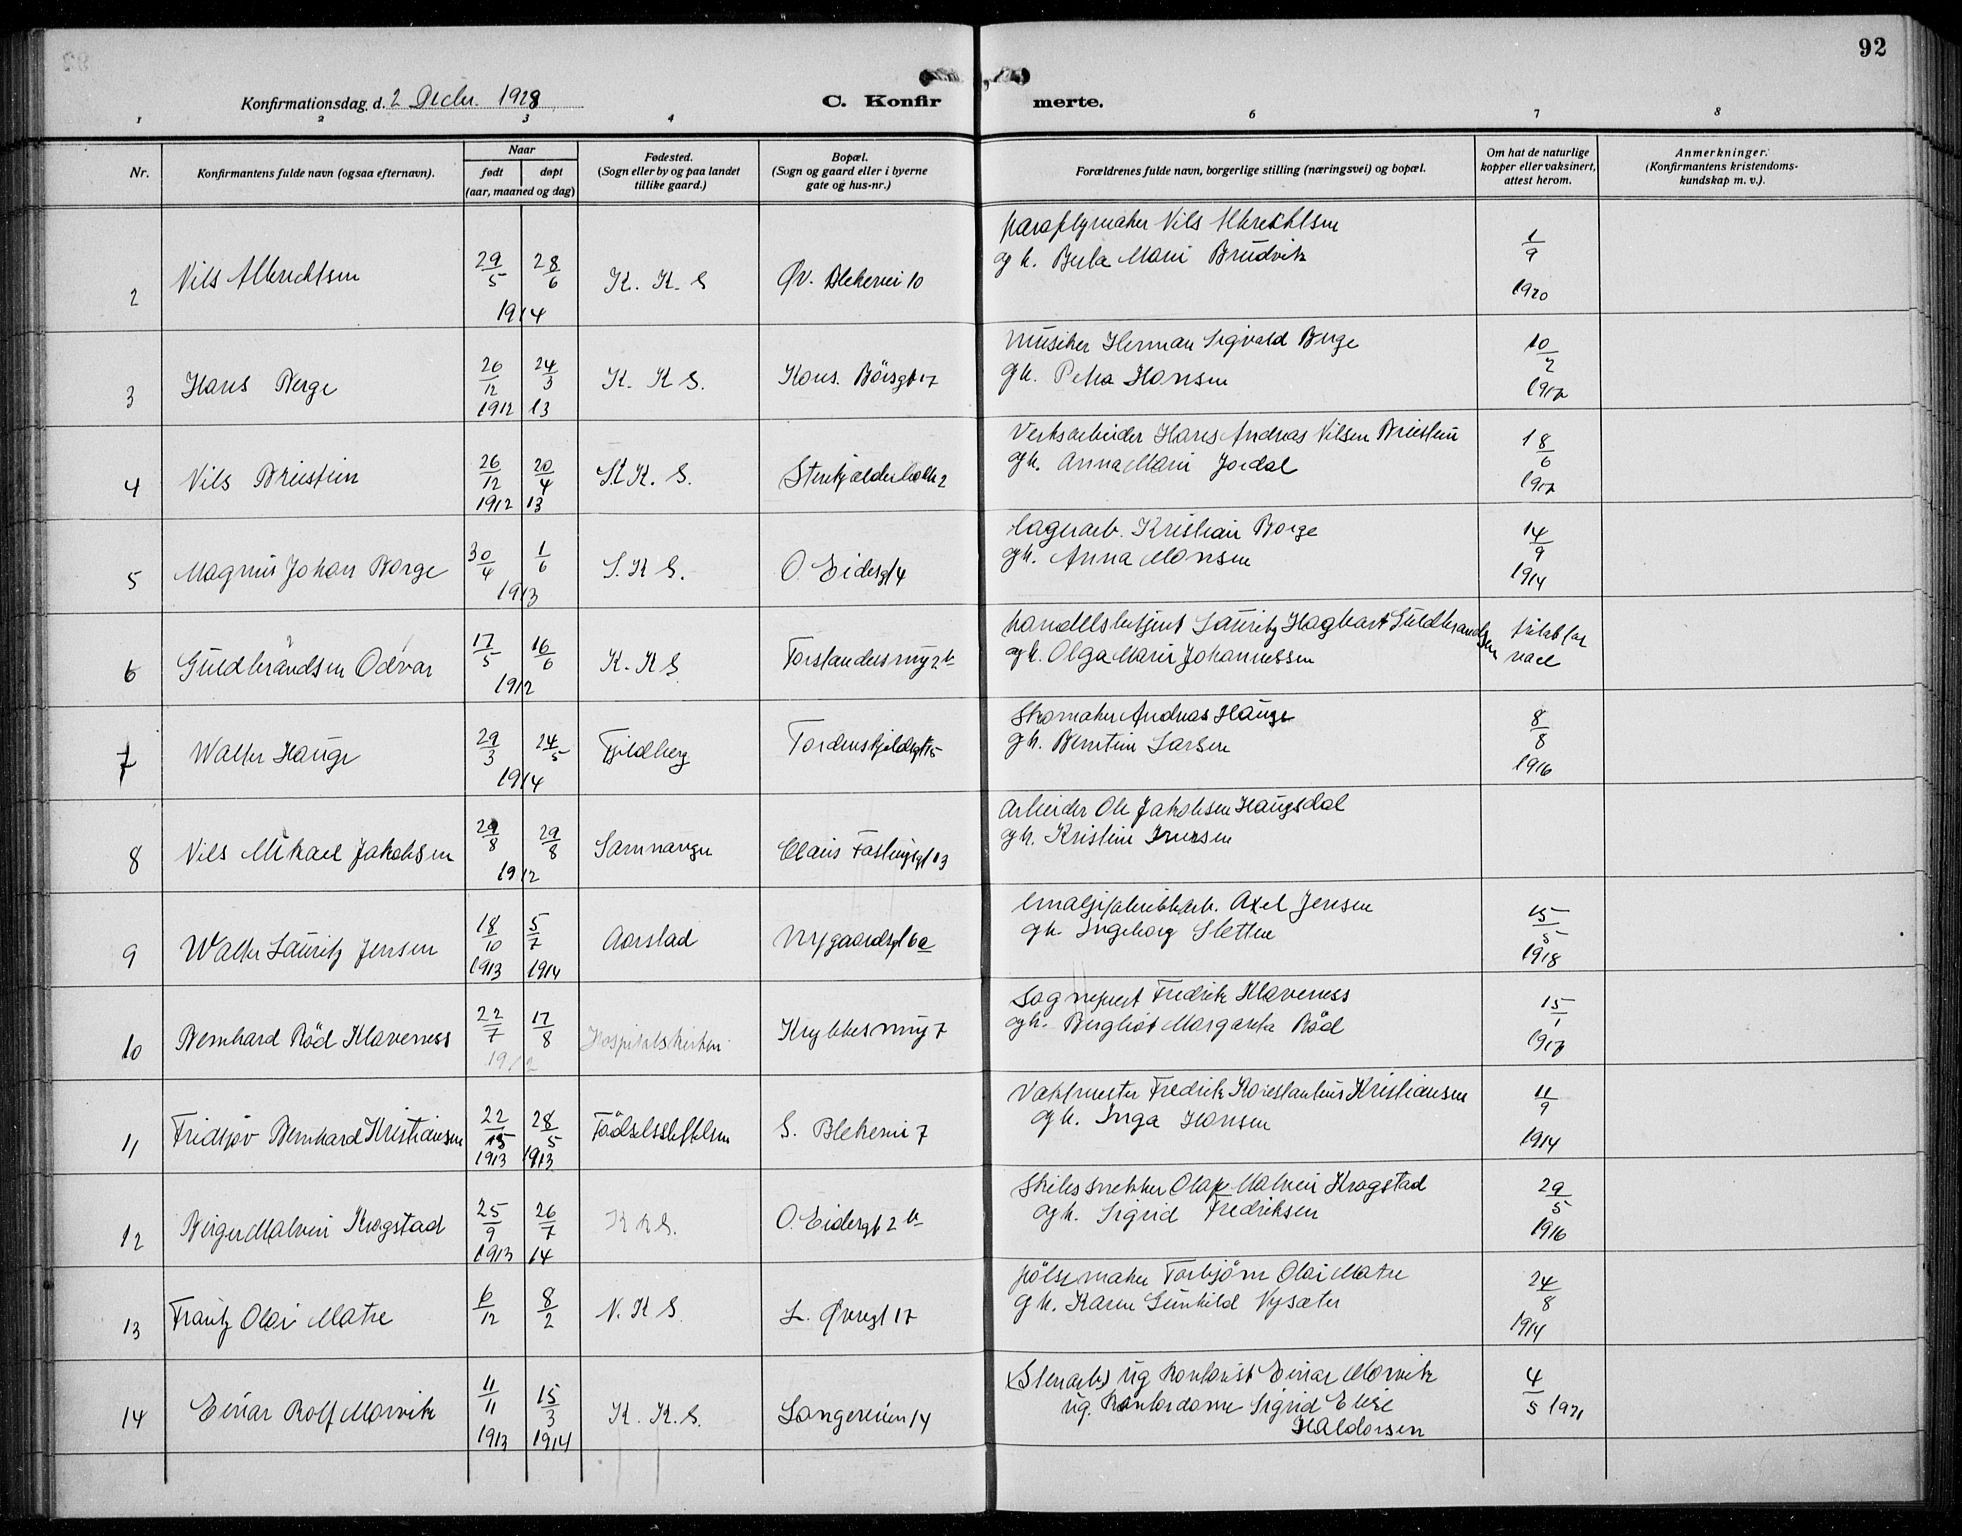 92
Konfirmationsdag d. 2 Decbr. 1928
C. Konfirmerte.
1 2 3 4 6 7 8
Nr.
Konfirmantens fulde navn (ogsaa efternavn).
Naar
født døpt
(aar, maaned og dag)
Fødested.
(Sogn eller by og paa landet
tillike gaard.)
Bopæl.
(Sogn og gaard eller i byerne
gate og hus-nr.)
Forældrenes fulde navn, borgerlige stilling (næringsvei) og bopæl.
Om hat de naturlige
kopper eller vaksinert,
attest herom.
Anmerkninger.
(Konfirmantens kristendoms-
kundskap m. v.).
2 Nils Albrechtsen 29/5 28/6 1914 K. K. S Øv. Blekevei 10
paraplymaker Nils Albrechtsen
og h. Berta Marie Brudvik
1/9 1920
3 Hans Berge 26/12 1912 24/3 13 K. K S. Kons. Børsgt 17
Musiker Herman Sigvald Berge
og h. Petra Hansen
10/2 1917
4 Nils Breistein 26/12 1912 20/4 13 St K. S. Stenkjelderbakk 2
Verksarbeider Hans Andreas Nilsen Breistein
og h. Anna Marie Jordal
18/6 1917
5 Magnus Johan Borge 30/4 1/6 1913 S. K S. O. Eidesgt 4
lagerarb. Kristian Borge
og h. Anna Monsen
14/9 1914
6 Guldbrandsen Odvar 17/5 16/6 1912 K. K S Forstandersmug 2b
handelsbetjent Lauritz Hagbart Guldbrandsen
og h. Olga Marie Johannessen
7 Walter Hauge 29/3 24/5 1914 Fjeldberg Tordenskjoldsgt 15
Skomaker Andreas Hauge
og h. Berntine Larsen
8/8 1916
8 Nils Mikael Jakobsen 29/8 29/8 1912 Samnanger Claus Fastingsgt 13
Arbeider Ole Jakobsen Haugsdal
og h. Kristine Iversen
9 Walter Lauritz Jensen 18/10 1913 5/7 1914 Aarstad Nygaardsgt 6a
Emaljefabrikkarb. Axel Jensen
og h. Ingeborg Sletten
15/5 1918
10 Bernhard Rød Klaveness 22/7 17/8 1912 Hospitalskirken Krybbesmug 7
Sogneprest Fredrik Klaveness
og h. Bergliot Margareta Rød
15/1 1917
11 Fridtjov Bernhard Kristiansen 22/5 1913 28/5 1913 Fødselsstiftelsen S. Blekevei 7
Vaktmester Fredrik Konstantius Kristiansen
og h. Inga Hansen
11/9 1914
12 Birger Malvin Krogstad 25/9 1913 26/7 14 K K S. O. Eidesgt 2b
Skibssnekker Olaf Malvin Krogstad
og h. Sigrid Fredriksen
29/5 1916
13 Frantz Olai Matre 6/12 8/2 N. K S. L. Øvregt 17
pølsemaker Torbjørn Olai Matre
og h. Karen Gunhild Nysæter
24/8 1914
14 Einar Rolf Morvik 11/11 1913 15/3 1914 K. K. S. Langeveien 14
Stenarb. ug Kontorist Einar Morvik
ug. Kontordame Sigrid Elise
Haldorsen
4/5 1921